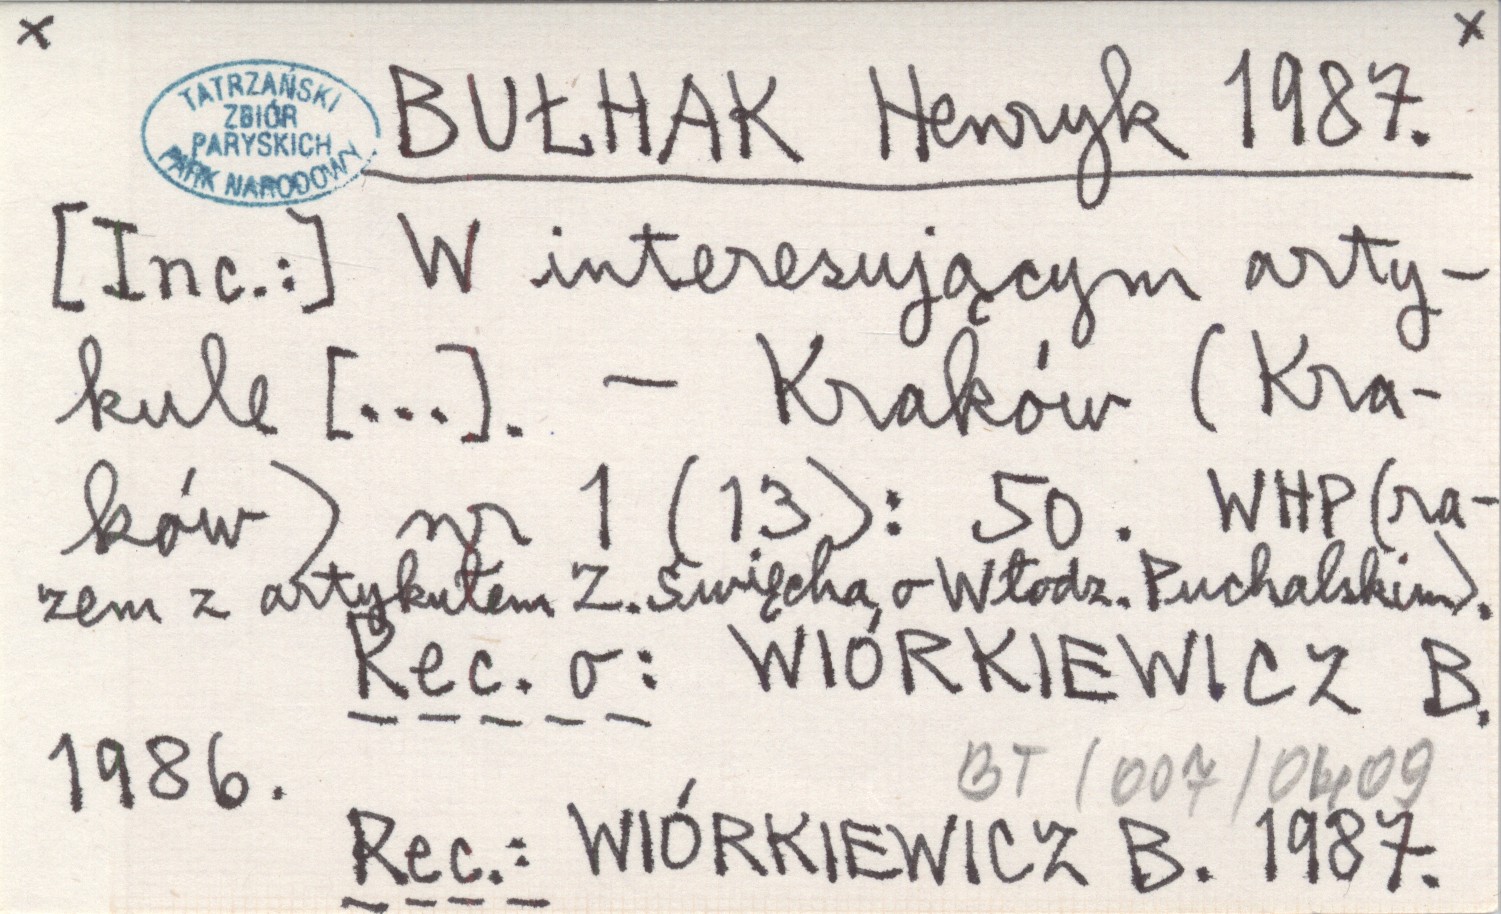 x x
TATRZAŃSKI
ZBIÓR
PARYSKICH
PARK NARODOWY
BUŁHAK Henryk 1987.
[Inc.:] W interesującym arty-
kule [...]. — Kraków (Kra-
ków) nr 1 (13): 50. WHP (ra-
zem z artykułem Z. Święcha o Włodz. Puchalskim).
Rec. o: WIÓRKIEWICZ B.
1986.
BT / 007 / 0409
Rec.: WIÓRKIEWICZ B. 1987.